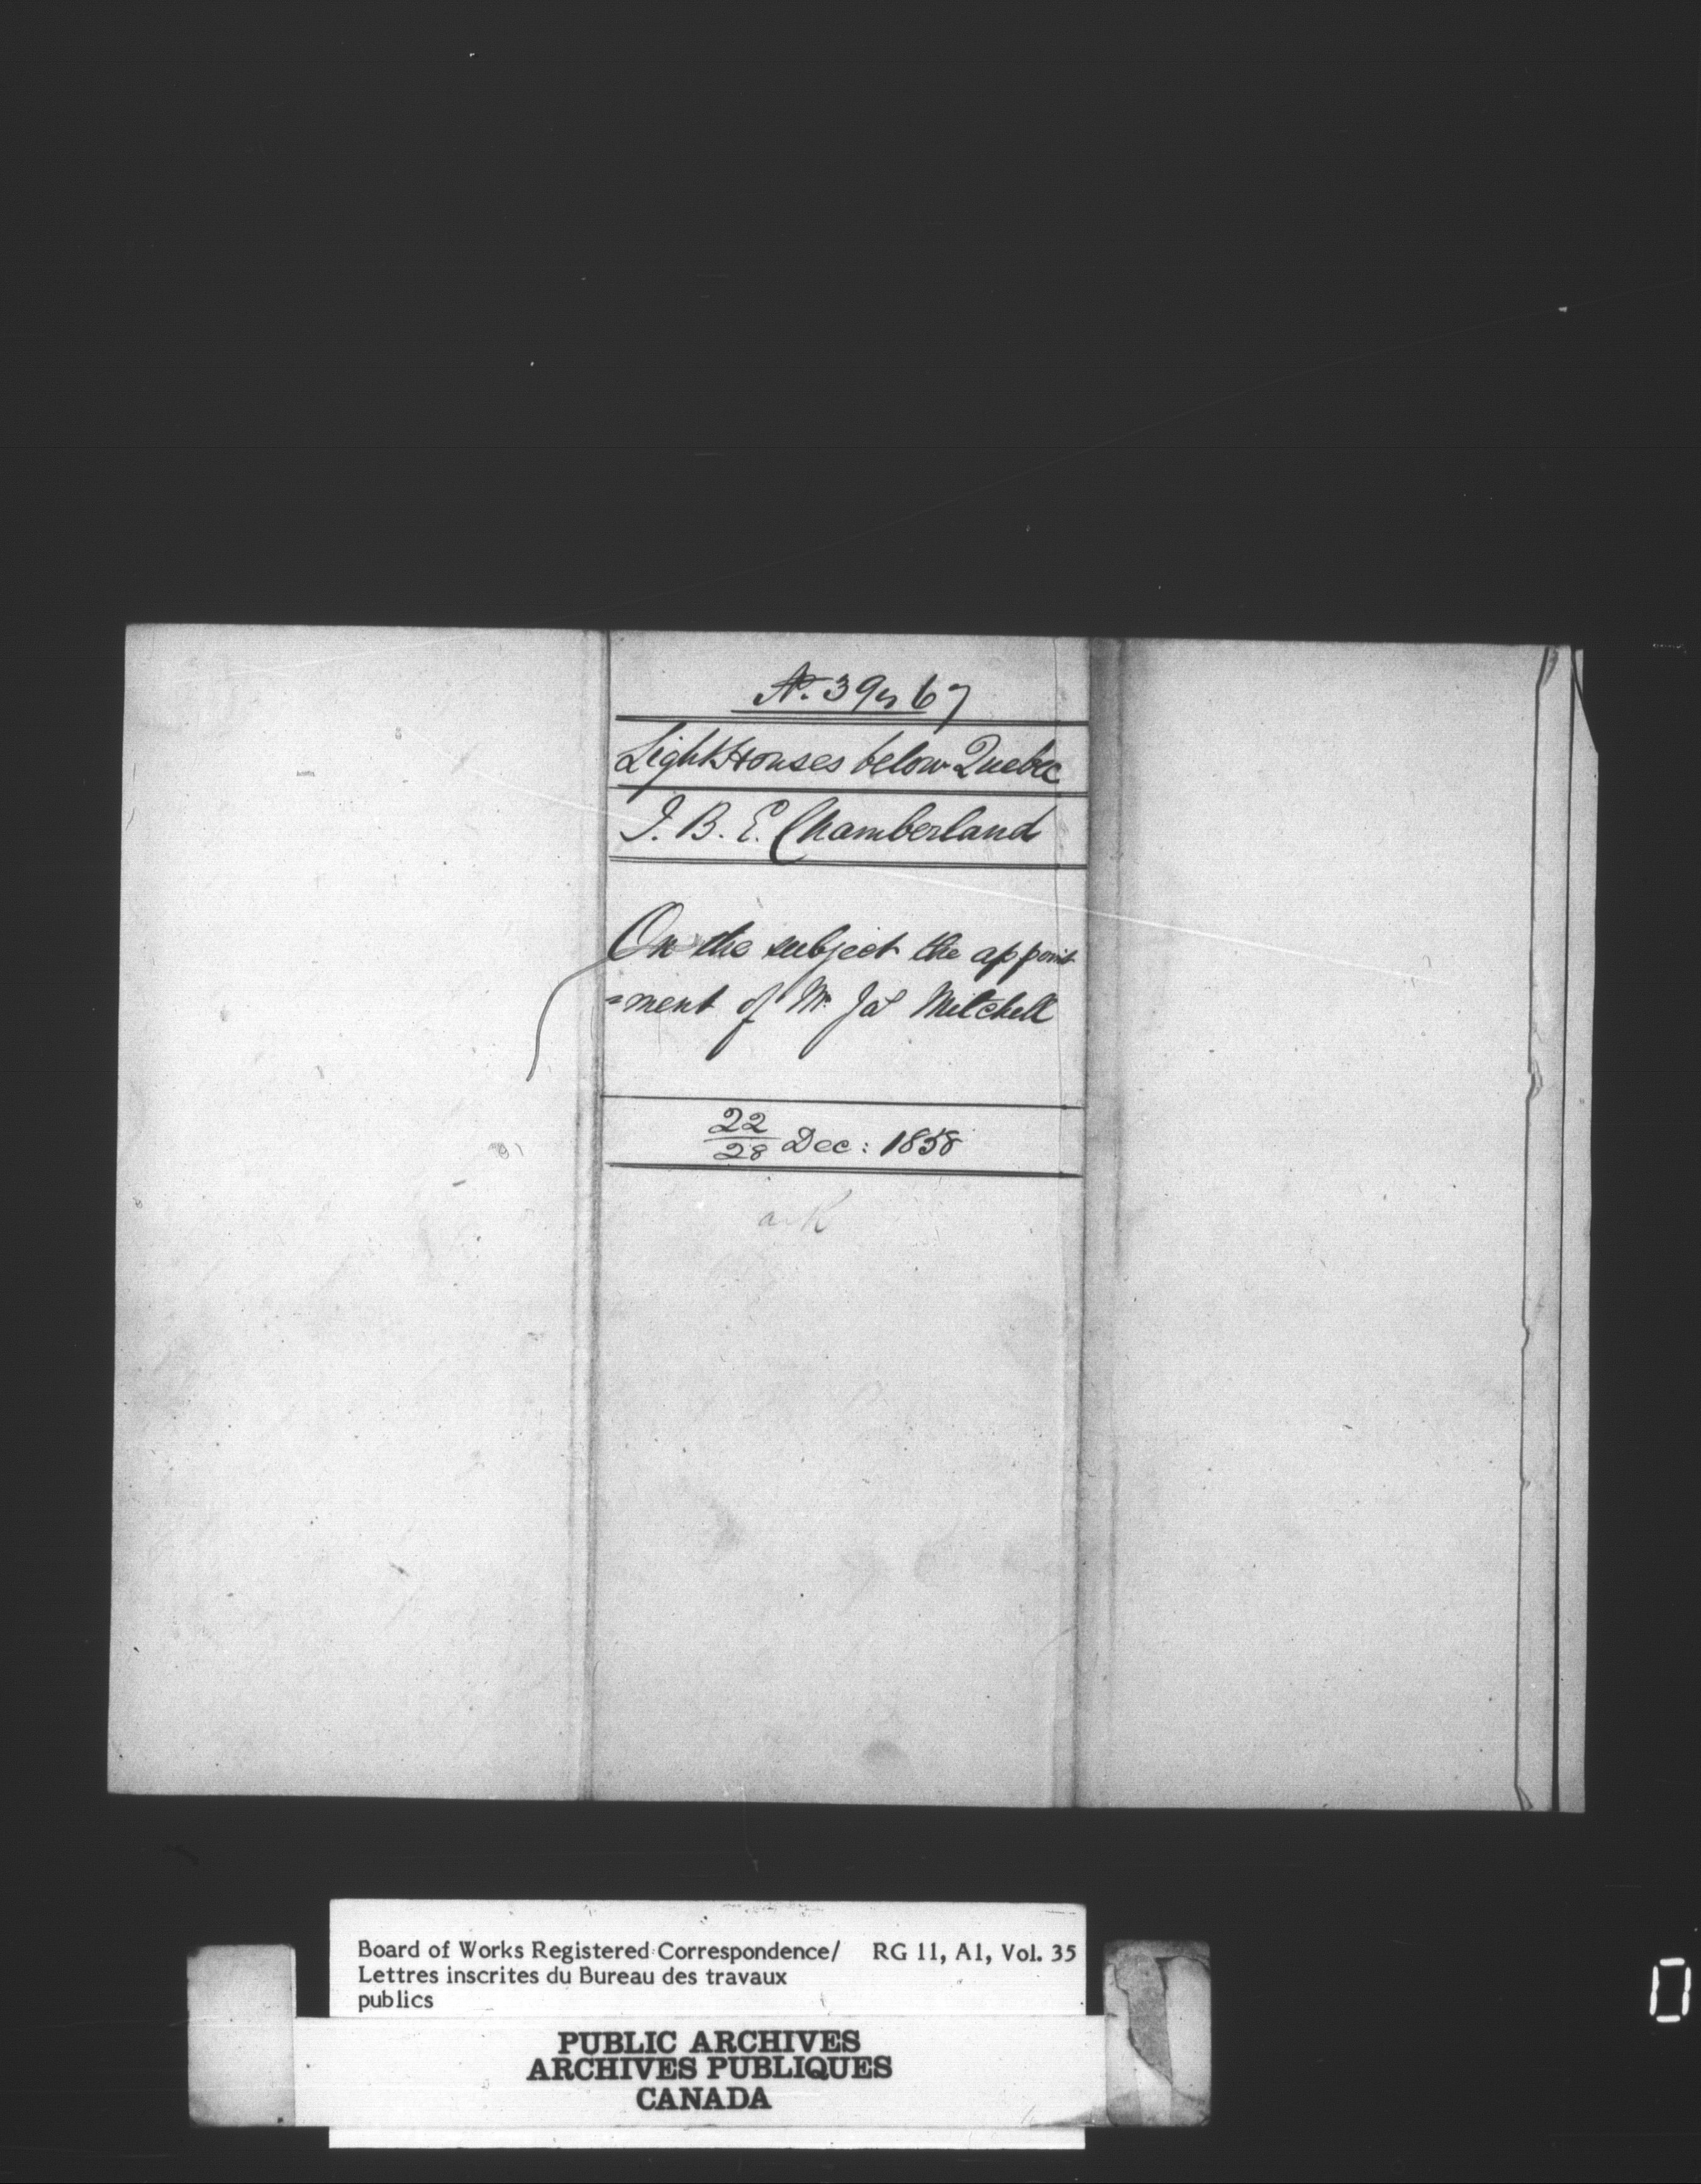 No. 39467
Light Houses below Quebec
J. B. E. Chamberland
On the subject the appoint
=ment of Mr. Jas Mitchell
22/28 Dec: 1858
Board of Works Registered Correspondence/ RG 11, A1, Vol. 35
Lettres inscrites du Bureau des travaux
publics
PUBLIC ARCHIVES
ARCHIVES PUBLIQUES
CANADA